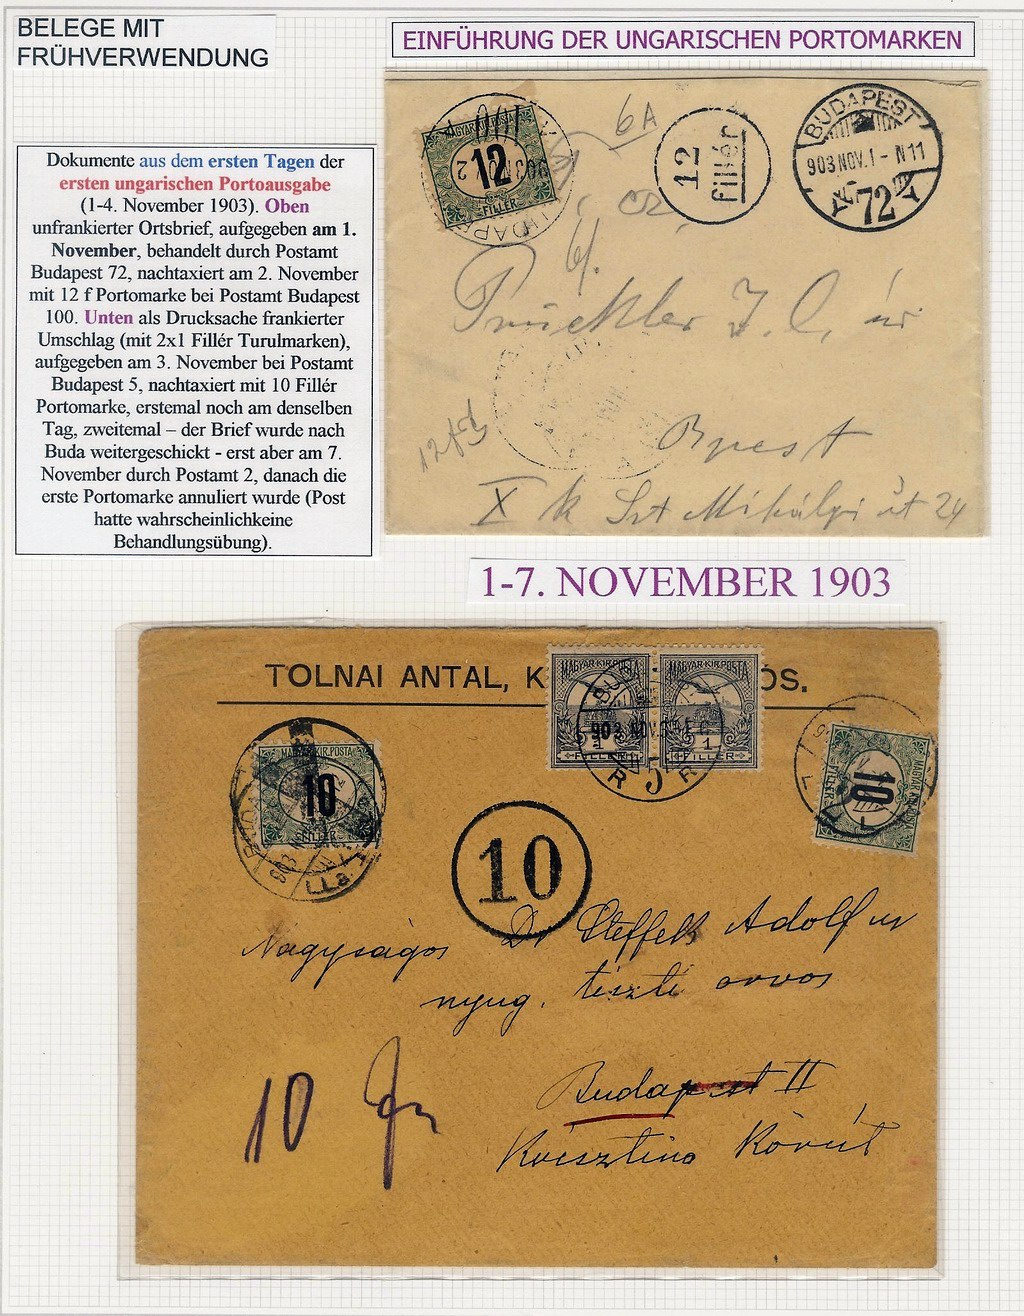 BELEGE MIT
FRÜHVERWENDUNG
EINFÜHRUNG DER UNGARISCHEN PORTOMARKEN
Dokumente aus dem ersten Tagen der
ersten ungarischen Portoausgabe
(1-4. November 1903). Oben
unfrankierter Ortsbrief, aufgegeben am 1.
November, behandelt durch Postamt
Budapest 72, nachtaxiert am 2. November
mit 12 f Portomarke bei Postamt Budapest
100. Unten als Drucksache frankierter
Umschlag (mit 2x1 Fillér Turulmarken),
aufgegeben am 3. November bei Postamt
Budapest 5, nachtaxiert mit 10 Fillér
Portomarke, erstemal noch am denselben
Tag, zweitemal – der Brief wurde nach
Buda weitergeschickt - erst aber am 7.
November durch Postamt 2, danach die
erste Portomarke annuliert wurde (Post
hatte wahrscheinlichkeine
Behandlungsübung).
MAGYAR KIR. POSTA
12
FILLÉR
6A
12
fillér
BUDAPEST
903 NOV. 1 - N 11
72
Bpest
X k Szt Mihályi út 24
1-7. NOVEMBER 1903
TOLNAI ANTAL, K
OS.
MAGYAR KIR. POSTA
1
FILLÉR
MAGYAR KIR. POSTA
1
FILLÉR
903 NOV. 3
5
MAGYAR KIR. POSTA
10
FILLÉR
MAGYAR KIR. POSTA
10
FILLÉR
10
Nagyságos Dr Steffek Adolf ur
nyug. tiszti orvos
10
Budapest II
Krisztina Körút